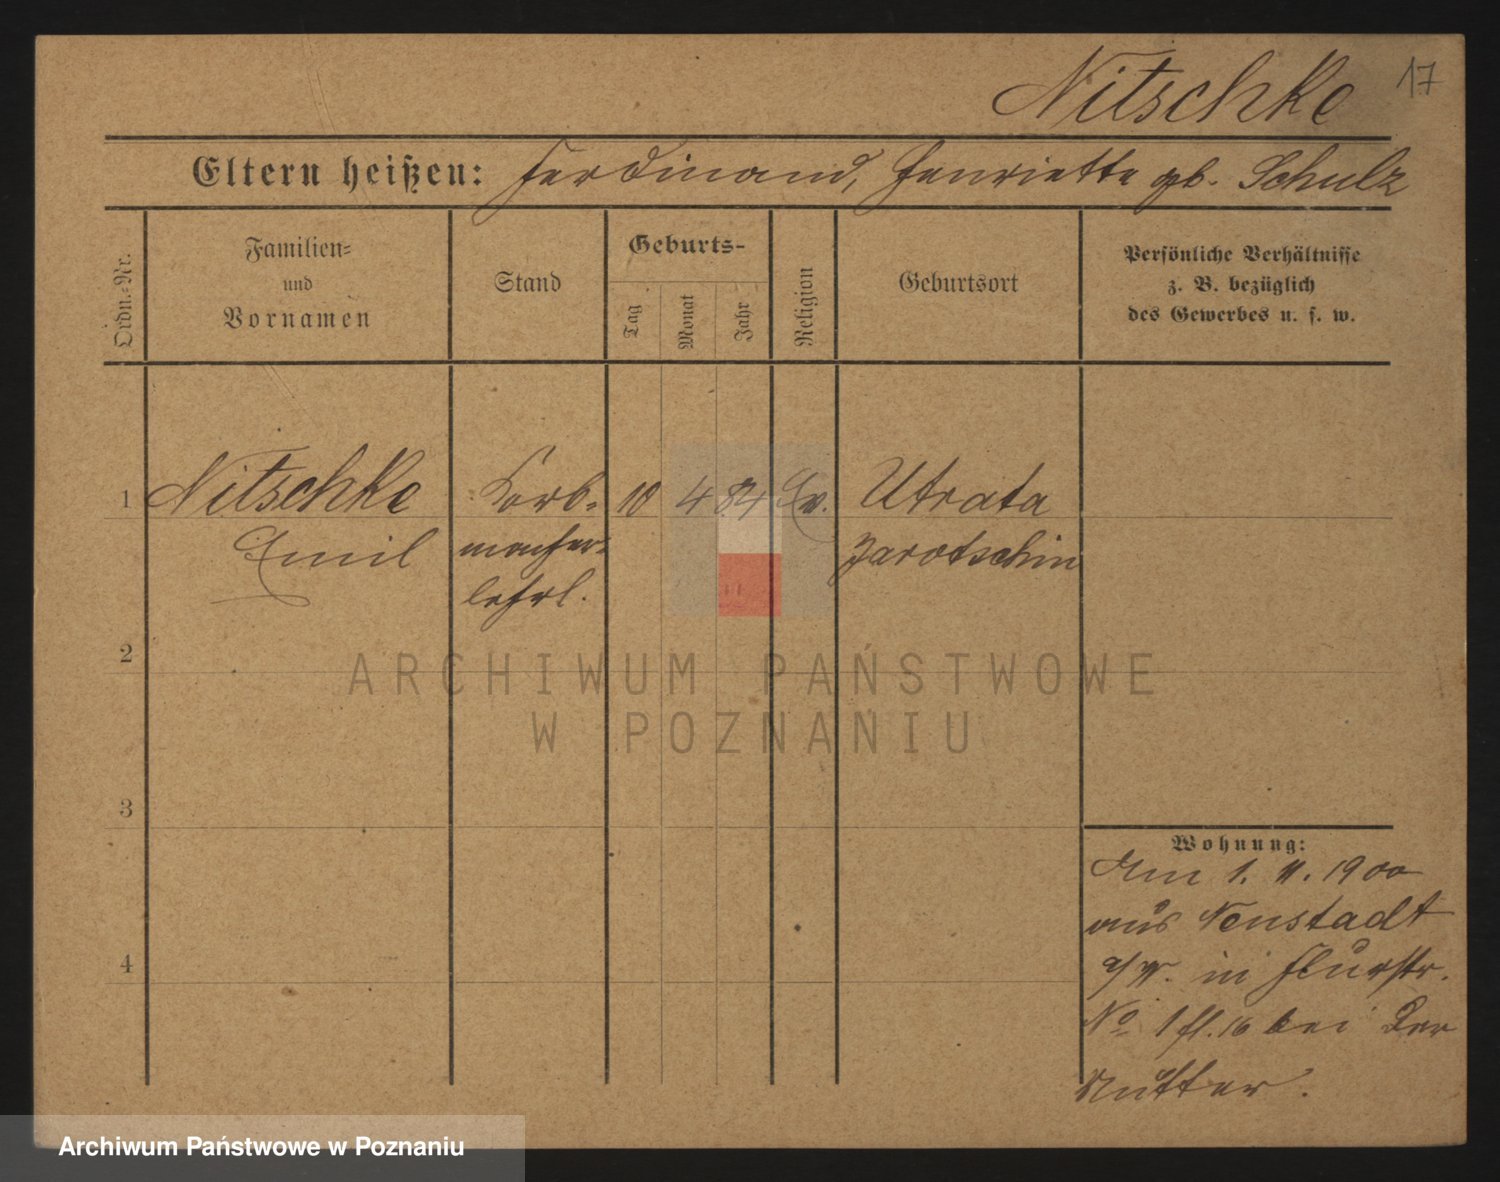 Nitschke 17
Eltern heißen: Ferdinand, Henriette gb. Schulz
Ordn.-Nr.
Familien-
und
Vornamen
Stand
Geburts-
Tag
Monat
Jahr
Religion
Geburtsort
Persönliche Verhältnisse
z. B. bezüglich
des Gewerbes u. s. w.
1 Nitschke Korb- 10 4 84 Ev. Utrata
Emil macher- Jarotschin
lehrl.
2
ARCHIWUM PAŃSTWOWE
W POZNANIU
3
Wohnung:
Am 1. 11. 1900
aus Neustadt
a/W. in Flurstr.
4
No 1 fl. 16 bei der
Mutter.
Archiwum Państwowe w Poznaniu